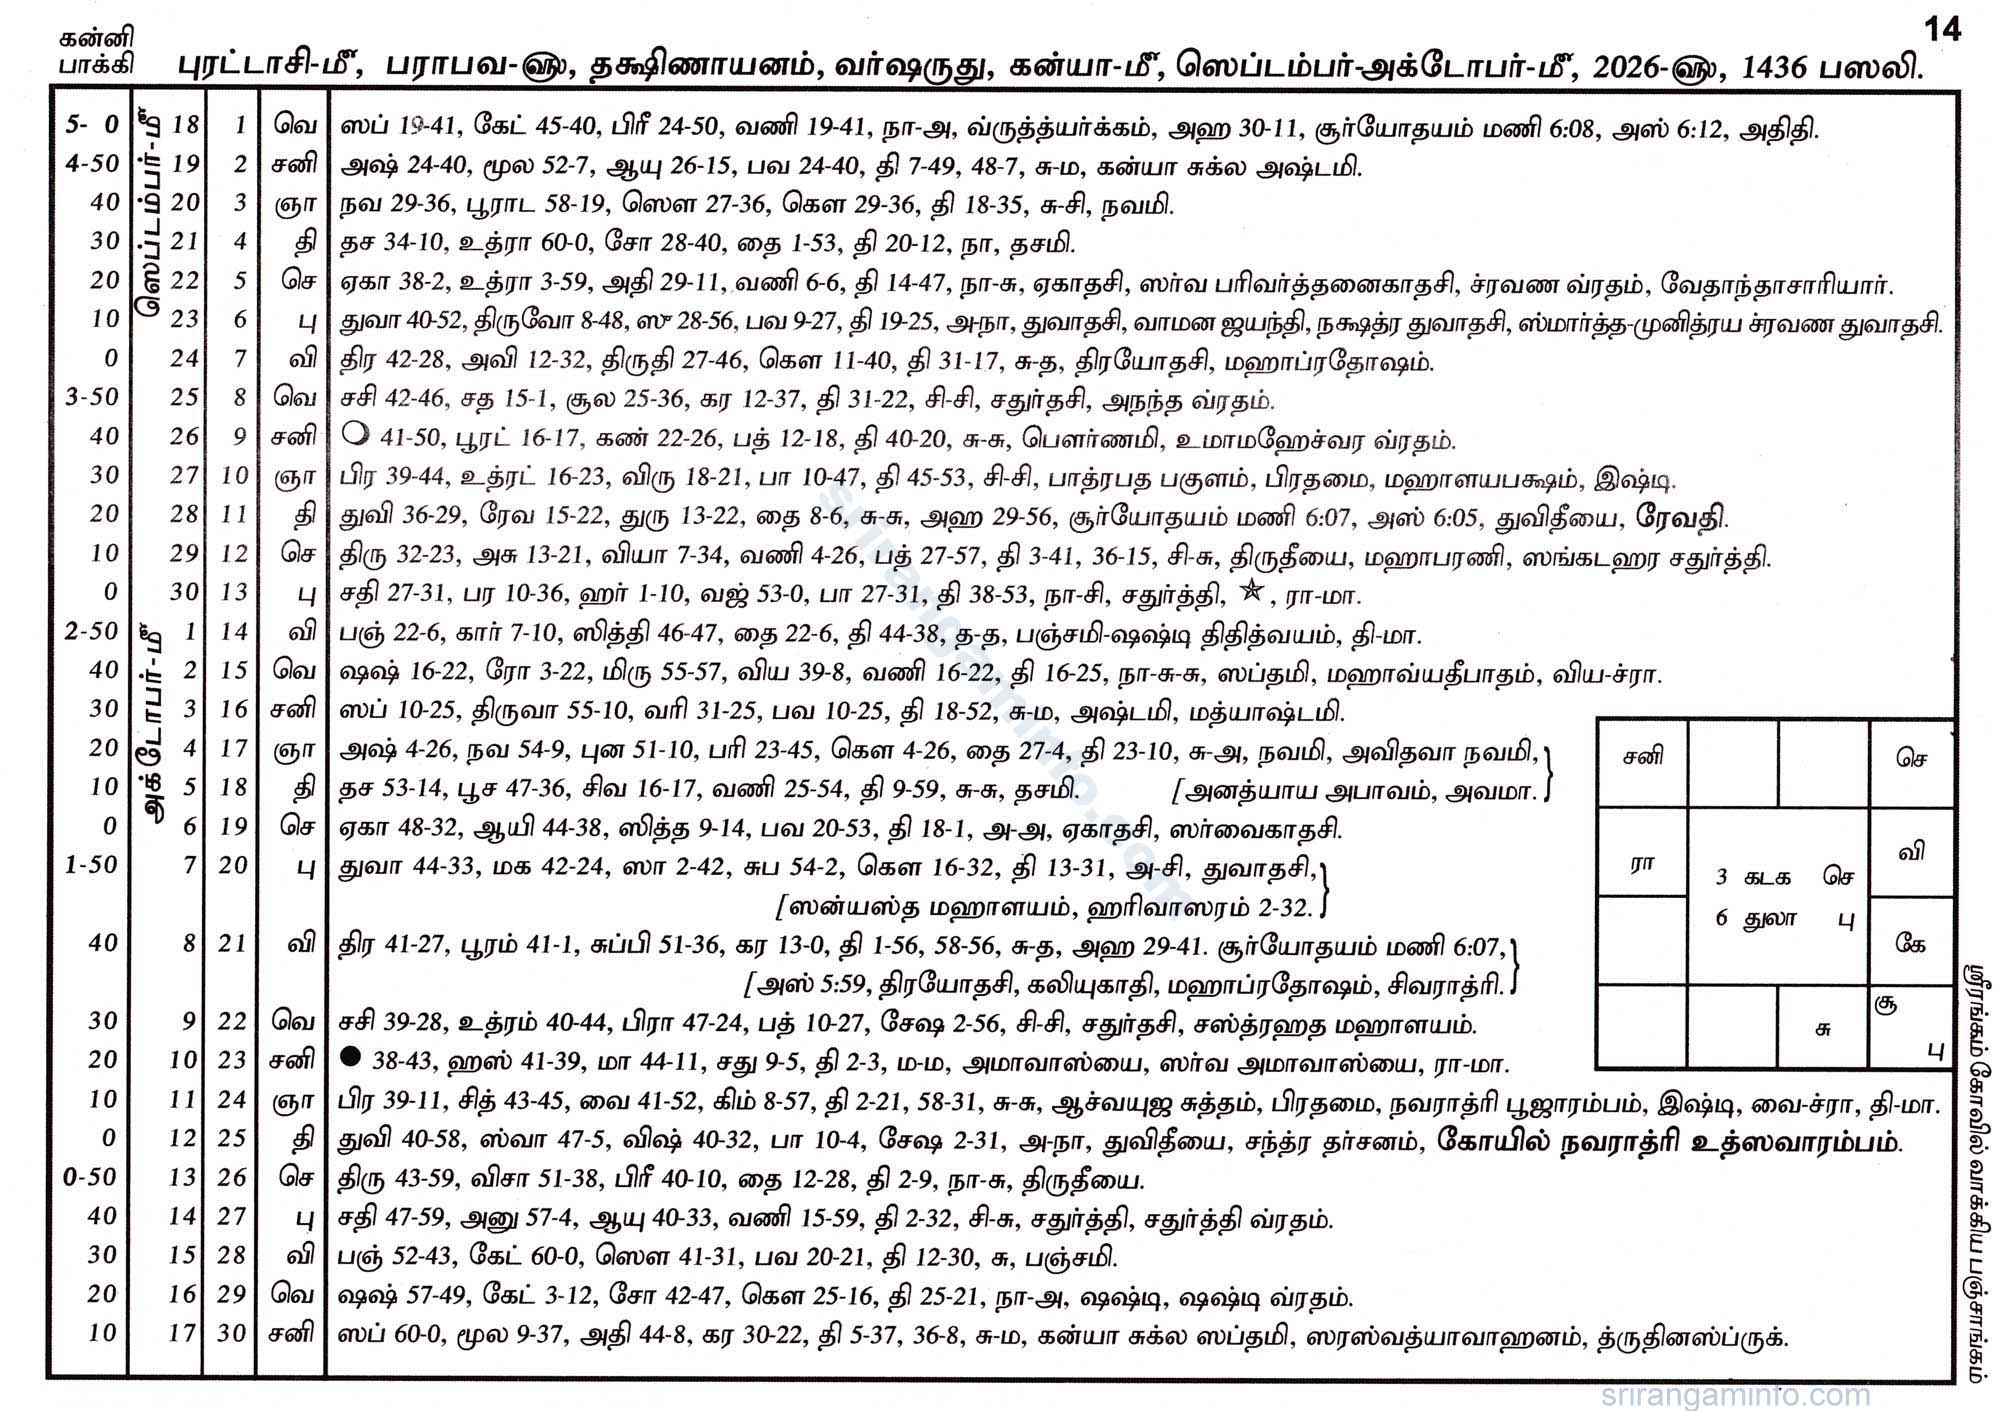 14
கன்னி
பாக்கி
புரட்டாசி-மீ, பராபவ-௵, தக்ஷிணாயனம், வர்ஷருது, கன்யா-மீ, ஸெப்டம்பர்-அக்டோபர்-மீ, 2026-௵, 1436 பஸலி.
ஸெப்டம்பர்-மீ
5- 0 18 1 வெ ஸப் 19-41, கேட் 45-40, பிரீ 24-50, வணி 19-41, நா-அ, வ்ருத்த்யர்க்கம், அஹ 30-11, சூர்யோதயம் மணி 6:08, அஸ் 6:12, அதிதி.
4-50 19 2 சனி அஷ் 24-40, மூல 52-7, ஆயு 26-15, பவ 24-40, தி 7-49, 48-7, சு-ம, கன்யா சுக்ல அஷ்டமி.
40 20 3 ஞா நவ 29-36, பூராட 58-19, ஸௌ 27-36, கௌ 29-36, தி 18-35, சு-சி, நவமி.
30 21 4 தி தச 34-10, உத்ரா 60-0, சோ 28-40, தை 1-53, தி 20-12, நா, தசமி.
20 22 5 செ ஏகா 38-2, உத்ரா 3-59, அதி 29-11, வணி 6-6, தி 14-47, நா-சு, ஏகாதசி, ஸர்வ பரிவர்த்தனைகாதசி, ச்ரவண வ்ரதம், வேதாந்தாசாரியார்.
10 23 6 பு துவா 40-52, திருவோ 8-48, ஸு 28-56, பவ 9-27, தி 19-25, அ-நா, துவாதசி, வாமன ஜயந்தி, நக்ஷத்ர துவாதசி, ஸ்மார்த்த-முனித்ரய ச்ரவண துவாதசி.
0 24 7 வி திர 42-28, அவி 12-32, திருதி 27-46, கௌ 11-40, தி 31-17, சு-த, திரயோதசி, மஹாப்ரதோஷம்.
3-50 25 8 வெ சசி 42-46, சத 15-1, சூல 25-36, கர 12-37, தி 31-22, சி-சி, சதுர்தசி, அநந்த வ்ரதம்.
40 26 9 சனி 41-50, பூரட் 16-17, கண் 22-26, பத் 12-18, தி 40-20, சு-சு, பௌர்ணமி, உமாமஹேச்வர வ்ரதம்.
30 27 10 ஞா பிர 39-44, உத்ரட் 16-23, விரு 18-21, பா 10-47, தி 45-53, சி-சி, பாத்ரபத பகுளம், பிரதமை, மஹாளயபக்ஷம், இஷ்டி.
20 28 11 தி துவி 36-29, ரேவ 15-22, துரு 13-22, தை 8-6, சு-சு, அஹ 29-56, சூர்யோதயம் மணி 6:07, அஸ் 6:05, துவிதீயை, ரேவதி.
10 29 12 செ திரு 32-23, அசு 13-21, வியா 7-34, வணி 4-26, பத் 27-57, தி 3-41, 36-15, சி-சு, திருதீயை, மஹாபரணி, ஸங்கடஹர சதுர்த்தி.
0 30 13 பு சதி 27-31, பர 10-36, ஹர் 1-10, வஜ் 53-0, பா 27-31, தி 38-53, நா-சி, சதுர்த்தி, ☆, ரா-மா.
அக்டோபர்-மீ
2-50 1 14 வி பஞ் 22-6, கார் 7-10, ஸித்தி 46-47, தை 22-6, தி 44-38, த-த, பஞ்சமி-ஷஷ்டி திதித்வயம், தி-மா.
40 2 15 வெ ஷஷ் 16-22, ரோ 3-22, மிரு 55-57, விய 39-8, வணி 16-22, தி 16-25, நா-சு-சு, ஸப்தமி, மஹாவ்யதீபாதம், விய-ச்ரா.
30 3 16 சனி ஸப் 10-25, திருவா 55-10, வரி 31-25, பவ 10-25, தி 18-52, சு-ம, அஷ்டமி, மத்யாஷ்டமி.
20 4 17 ஞா அஷ் 4-26, நவ 54-9, புன 51-10, பரி 23-45, கௌ 4-26, தை 27-4, தி 23-10, சு-அ, நவமி, அவிதவா நவமி,}
10 5 18 தி தச 53-14, பூச 47-36, சிவ 16-17, வணி 25-54, தி 9-59, சு-சு, தசமி. [அனத்யாய அபாவம், அவமா.
0 6 19 செ ஏகா 48-32, ஆயி 44-38, ஸித்த 9-14, பவ 20-53, தி 18-1, அ-அ, ஏகாதசி, ஸர்வைகாதசி.
1-50 7 20 பு துவா 44-33, மக 42-24, ஸா 2-42, சுப 54-2, கௌ 16-32, தி 13-31, அ-சி, துவாதசி,}
[ஸன்யஸ்த மஹாளயம், ஹரிவாஸரம் 2-32.
40 8 21 வி திர 41-27, பூரம் 41-1, சுப்பி 51-36, கர 13-0, தி 1-56, 58-56, சு-த, அஹ 29-41. சூர்யோதயம் மணி 6:07,}
[அஸ் 5:59, திரயோதசி, கலியுகாதி, மஹாப்ரதோஷம், சிவராத்ரி.
30 9 22 வெ சசி 39-28, உத்ரம் 40-44, பிரா 47-24, பத் 10-27, சேஷ 2-56, சி-சி, சதுர்தசி, சஸ்த்ரஹத மஹாளயம்.
20 10 23 சனி 38-43, ஹஸ் 41-39, மா 44-11, சது 9-5, தி 2-3, ம-ம, அமாவாஸ்யை, ஸர்வ அமாவாஸ்யை, ரா-மா.
10 11 24 ஞா பிர 39-11, சித் 43-45, வை 41-52, கிம் 8-57, தி 2-21, 58-31, சு-சு, ஆச்வயுஜ சுத்தம், பிரதமை, நவராத்ரி பூஜாரம்பம், இஷ்டி, வை-ச்ரா, தி-மா.
0 12 25 தி துவி 40-58, ஸ்வா 47-5, விஷ் 40-32, பா 10-4, சேஷ 2-31, அ-நா, துவிதீயை, சந்த்ர தர்சனம், கோயில் நவராத்ரி உத்ஸவாரம்பம்.
0-50 13 26 செ திரு 43-59, விசா 51-38, பிரீ 40-10, தை 12-28, தி 2-9, நா-சு, திருதீயை.
40 14 27 பு சதி 47-59, அனு 57-4, ஆயு 40-33, வணி 15-59, தி 2-32, சி-சு, சதுர்த்தி, சதுர்த்தி வ்ரதம்.
30 15 28 வி பஞ் 52-43, கேட் 60-0, ஸௌ 41-31, பவ 20-21, தி 12-30, சு, பஞ்சமி.
20 16 29 வெ ஷஷ் 57-49, கேட் 3-12, சோ 42-47, கௌ 25-16, தி 25-21, நா-அ, ஷஷ்டி, ஷஷ்டி வ்ரதம்.
10 17 30 சனி ஸப் 60-0, மூல 9-37, அதி 44-8, கர 30-22, தி 5-37, 36-8, சு-ம, கன்யா சுக்ல ஸப்தமி, ஸரஸ்வத்யாவாஹனம், த்ருதினஸ்ப்ருக்.
சனி செ
ரா வி
3 கடக செ
6 துலா பு
கே
சு சூ
பு
ஸ்ரீரங்கம் கோவில் வாக்கிய பஞ்சாங்கம்
srirangaminfo.com
srirangaminfo.com